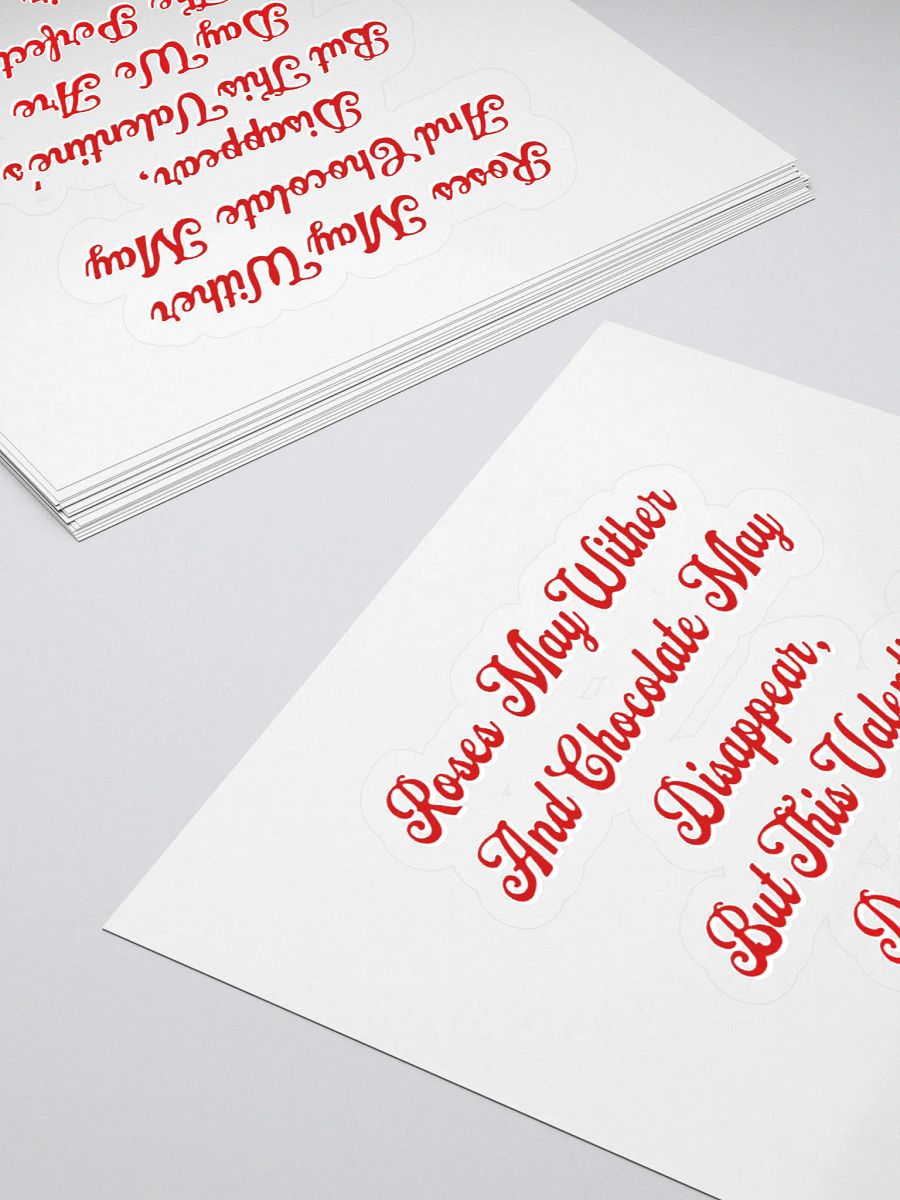 Roses May Wither
And Chocolate May
Disappear,
But This Valentine's
Day We Are
The Perfect
Roses May Wither
And Chocolate May
Disappear,
But This Valenti
D